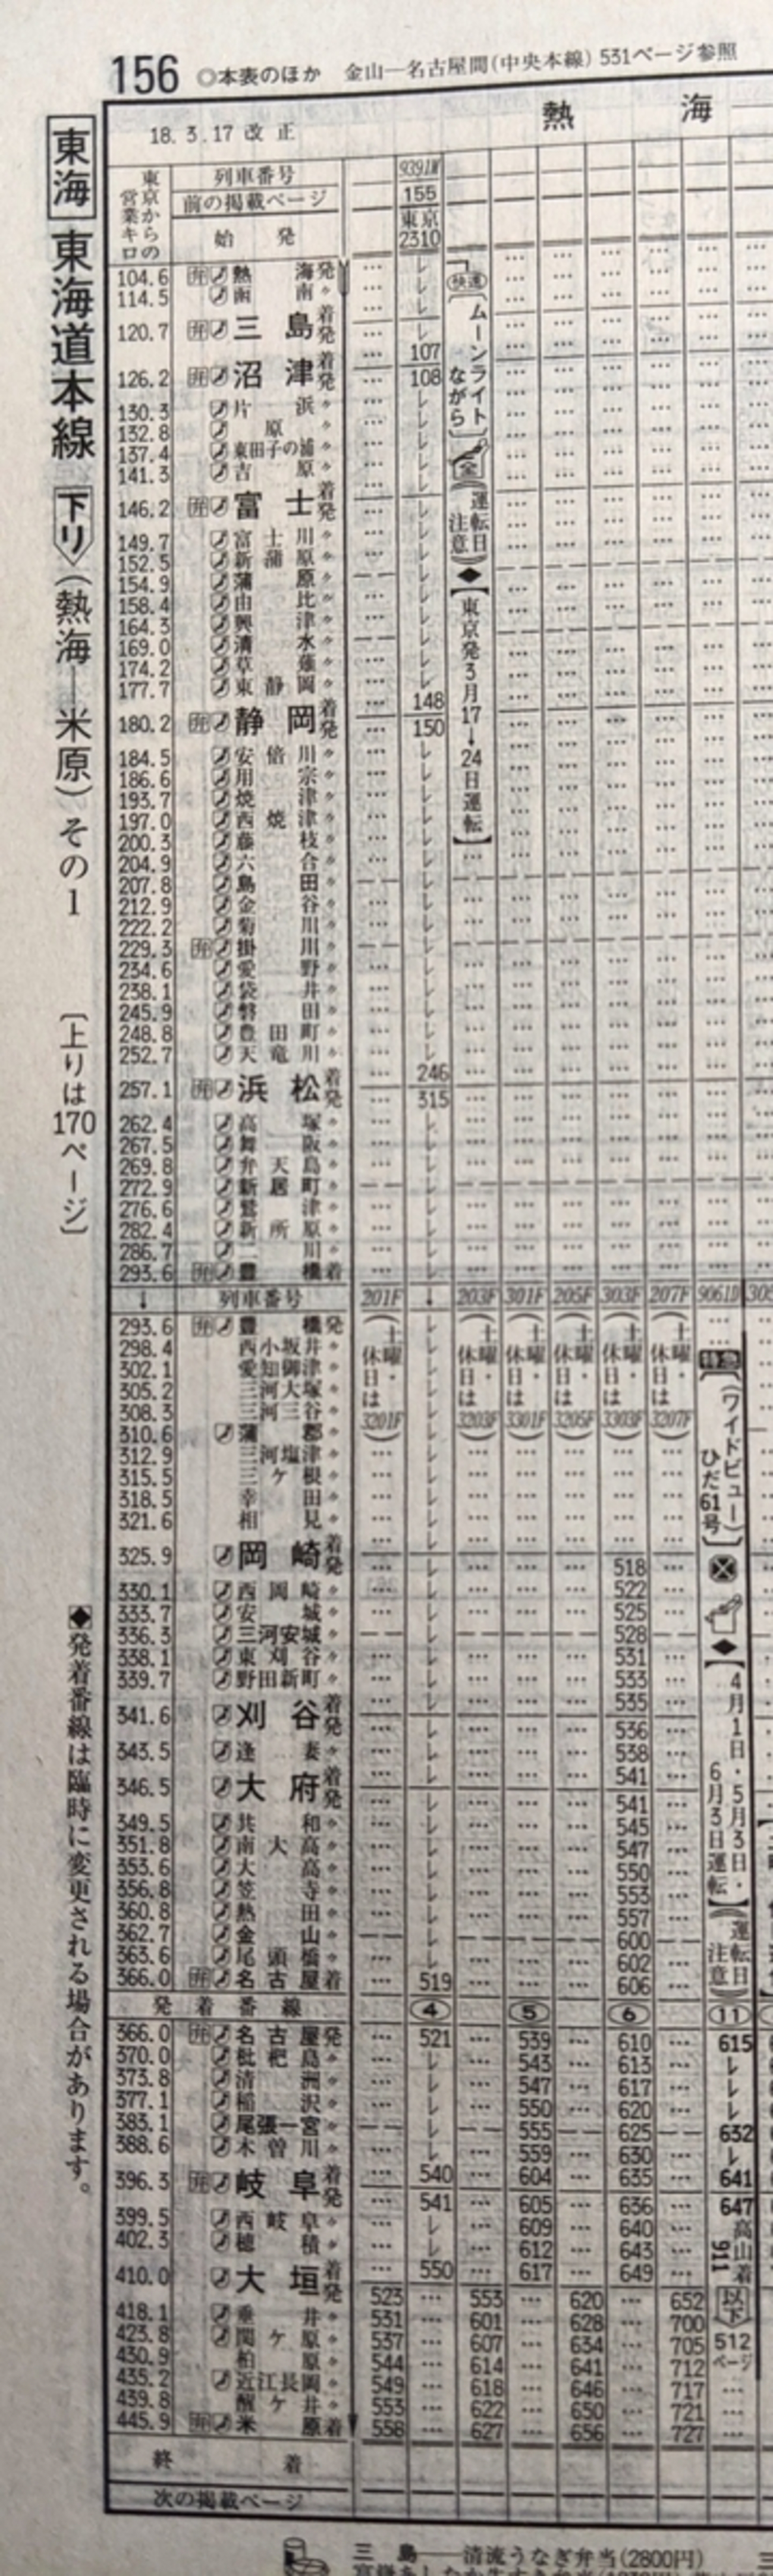 156 ◎本表のほか 金山―名古屋間(中央本線)531ページ参照
東海 東海道本線 下り (熱海―米原) その1 〔上りは170ページ〕
◆発着番線は臨時に変更される場合があります。
18.3.17改正
熱 海
東京からの営業キロ
列車番号 9391M
前の掲載ページ 155
始発 東京 2310
104.6 弁 熱海発 レ
114.5 函南〃 レ
120.7 弁 三島着発 レ
126.2 弁 沼津着 107
発 108
130.3 片浜〃 レ
132.8 原〃 レ
137.4 東田子の浦〃 レ
141.3 吉原〃 レ
146.2 弁 富士着発 レ
149.7 富士川〃 レ
152.5 新蒲原〃 レ
154.9 蒲原〃 レ
158.4 由比〃 レ
164.3 興津〃 レ
169.0 清水〃 レ
174.2 草薙〃 レ
177.7 東静岡〃 レ
180.2 弁 静岡着 148
発 150
184.5 安倍川〃 レ
186.6 用宗〃 レ
193.7 焼津〃 レ
197.0 西焼津〃 レ
200.3 藤枝〃 レ
204.9 六合〃 レ
207.8 島田〃 レ
212.9 金谷〃 レ
222.2 菊川〃 レ
229.3 弁 掛川〃 レ
234.6 愛野〃 レ
238.1 袋井〃 レ
245.9 磐田〃 レ
248.8 豊田町〃 レ
252.7 天竜川〃 レ
257.1 弁 浜松着 246
発 315
262.4 高塚〃 レ
267.5 舞阪〃 レ
269.8 弁天島〃 レ
272.9 新居町〃 レ
276.6 鷲津〃 レ
282.4 新所原〃 レ
286.7 二川〃 レ
293.6 弁 豊橋着 レ
快速
〔ムーンライトながら〕
全
(運転日注意)
◆
【東京発3月17→24日運転】
↓ 列車番号 201F ↓ 203F 301F 205F 303F 207F 9061D
(土曜・休日は3201F)
(土曜・休日は3203F)
(土曜・休日は3301F)
(土曜・休日は3205F)
(土曜・休日は3303F)
(土曜・休日は3207F)
293.6 弁 豊橋発 レ
298.4 西小坂井〃 レ
302.1 愛知御津〃 レ
305.2 三河大塚〃 レ
308.3 三河三谷〃 レ
310.6 蒲郡〃 レ
312.9 三河塩津〃 レ
315.5 三ケ根〃 レ
318.5 幸田〃 レ
321.6 相見〃 レ
325.9 岡崎着発 レ 518
330.1 西岡崎〃 レ 522
333.7 安城〃 レ 525
336.3 三河安城〃 レ 528
338.1 東刈谷〃 レ 531
339.7 野田新町〃 レ 533
341.6 刈谷着 レ 535
発 レ 536
343.5 逢妻〃 レ 538
346.5 大府着 レ 541
発 レ 541
349.5 共和〃 レ 545
351.8 南大高〃 レ 547
353.6 大高〃 レ 550
356.8 笠寺〃 レ 553
360.8 熱田〃 レ 557
362.7 金山〃 レ 600
363.6 尾頭橋〃 レ 602
366.0 弁 名古屋着 519 606
特急
〔(ワイドビュー)ひだ61号〕
◆
【4月1日・5月3日・6月3日運転】
(運転日注意)
発着番線 ④ ⑤ ⑥ ⑪
366.0 弁 名古屋発 … 521 … 539 … 610 … 615
370.0 枇杷島〃 … レ … 543 … 613 … レ
373.8 清洲〃 … レ … 547 … 617 … レ
377.1 稲沢〃 … レ … 550 … 620 … レ
383.1 尾張一宮〃 レ 555 625 632
388.6 木曽川〃 … レ … 559 … 630 … レ
396.3 弁 岐阜着 … 540 … 604 … 635 … 641
発 … 541 … 605 … 636 … 647
399.5 西岐阜〃 … レ … 609 … 640 …
402.3 穂積〃 … レ … 612 … 643 …
410.0 大垣着 … 550 … 617 … 649 …
発 523 … 553 … 620 … 652
418.1 垂井〃 531 … 601 … 628 … 700
423.8 関ケ原〃 537 … 607 … 634 … 705
430.9 柏原〃 544 … 614 … 641 … 712
435.2 近江長岡〃 549 … 618 … 646 … 717
439.8 醒ケ井〃 553 … 622 … 650 … 721
445.9 弁 米原着 558 … 627 … 656 … 727
高山着 911
以下 512ページ
終着
次の掲載ページ
三島――清流うなぎ弁当(2800円)